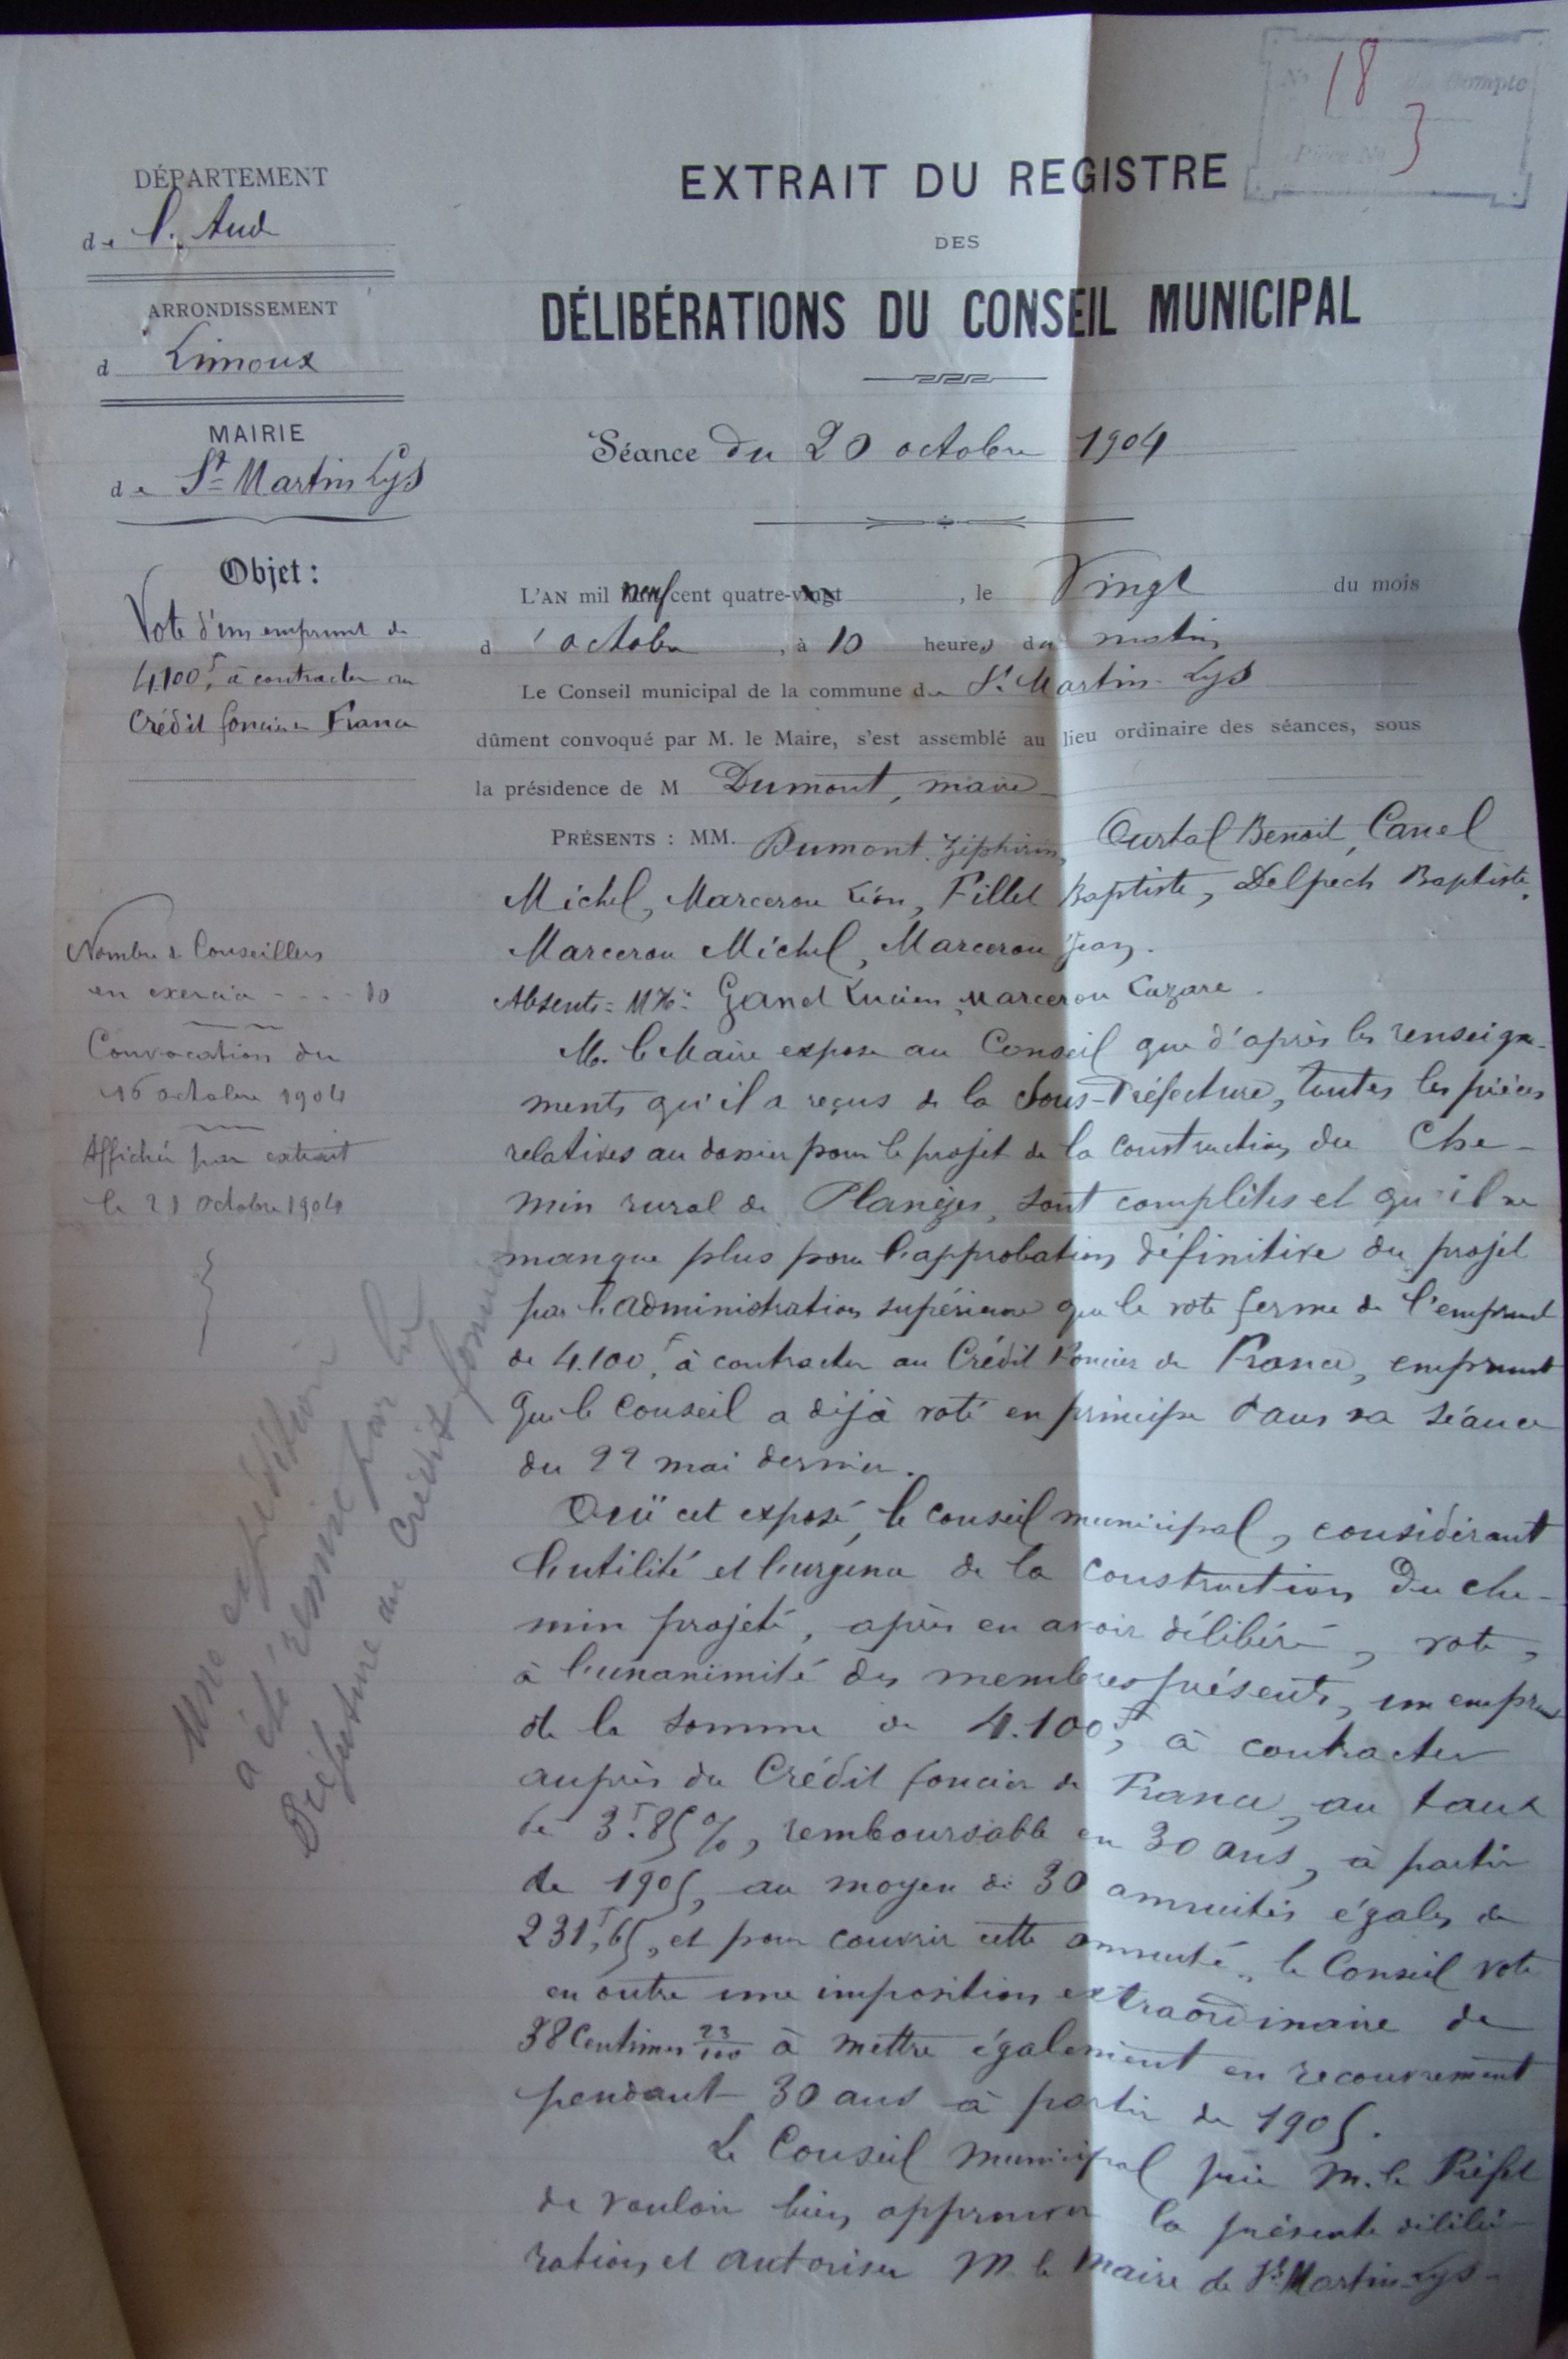 N° 18 du Compte
Pièce N° 3
DÉPARTEMENT
de l'Aude
ARRONDISSEMENT
d Limoux
MAIRIE
de St Martin Lys
Objet :
Vote d'un emprunt de
4.100f, à contracter au
Crédit foncier de France
Nombre de Conseillers
en exercice - - - - 10
Convocation du
16 octobre 1904
Affichée par extrait
le 21 octobre 1904
Une expédition
a été remise par la
Préfecture au Crédit foncier
EXTRAIT DU REGISTRE
DES
DÉLIBÉRATIONS DU CONSEIL MUNICIPAL
Séance du 20 octobre 1904
L'AN mil neuf cent quatre-vingt , le Vingt du mois
d'octobre , à 10 heures du matin
Le Conseil municipal de la commune de St Martin-Lys
dûment convoqué par M. le Maire, s'est assemblé au lieu ordinaire des séances, sous
la présidence de M Dumont, maire
PRÉSENTS : MM. Dumont Zéphirin, Ourtal Benoit, Canel
Michel, Marcerou Léon, Fillet Baptiste, Delpech Baptiste,
Marcerou Michel, Marcerou Jean.
Absents = MM. Gand Lucien, Marcerou Lazare.
M. le Maire expose au Conseil que d'après les renseigne-
ments qu'il a reçus de la Sous-Préfecture, toutes les pièces
relatives au dossier pour le projet de la construction du Che-
min rural de Planèzes, sont complètes et qu'il ne
manque plus pour l'approbation définitive du projet
par l'administration supérieure que le vote ferme de l'emprunt
de 4.100f, à contracter au Crédit Foncier de France, emprunt
que le Conseil a déjà voté en principe dans sa séance
du 22 mai dernier.
Ouï cet exposé, le conseil municipal, considérant
l'utilité et l'urgence de la construction du che-
min projeté, après en avoir délibéré, vote,
à l'unanimité des membres présents, un emprunt
de la somme de 4.100f, à contracter
auprès du Crédit foncier de France, au taux
de 3f.85 %, remboursable en 30 ans, à partir
de 1905, au moyen de 30 annuités égales de
231f,65, et pour couvrir cette annuité, le Conseil vote
en outre une imposition extraordinaire de
38 Centimes 23/100 à mettre également en recouvrement
pendant 30 ans à partir de 1905.
Le Conseil municipal prie M. le Préfet
de vouloir bien approuver la présente délibé-
ration et autoriser M. le Maire de St Martin-Lys-